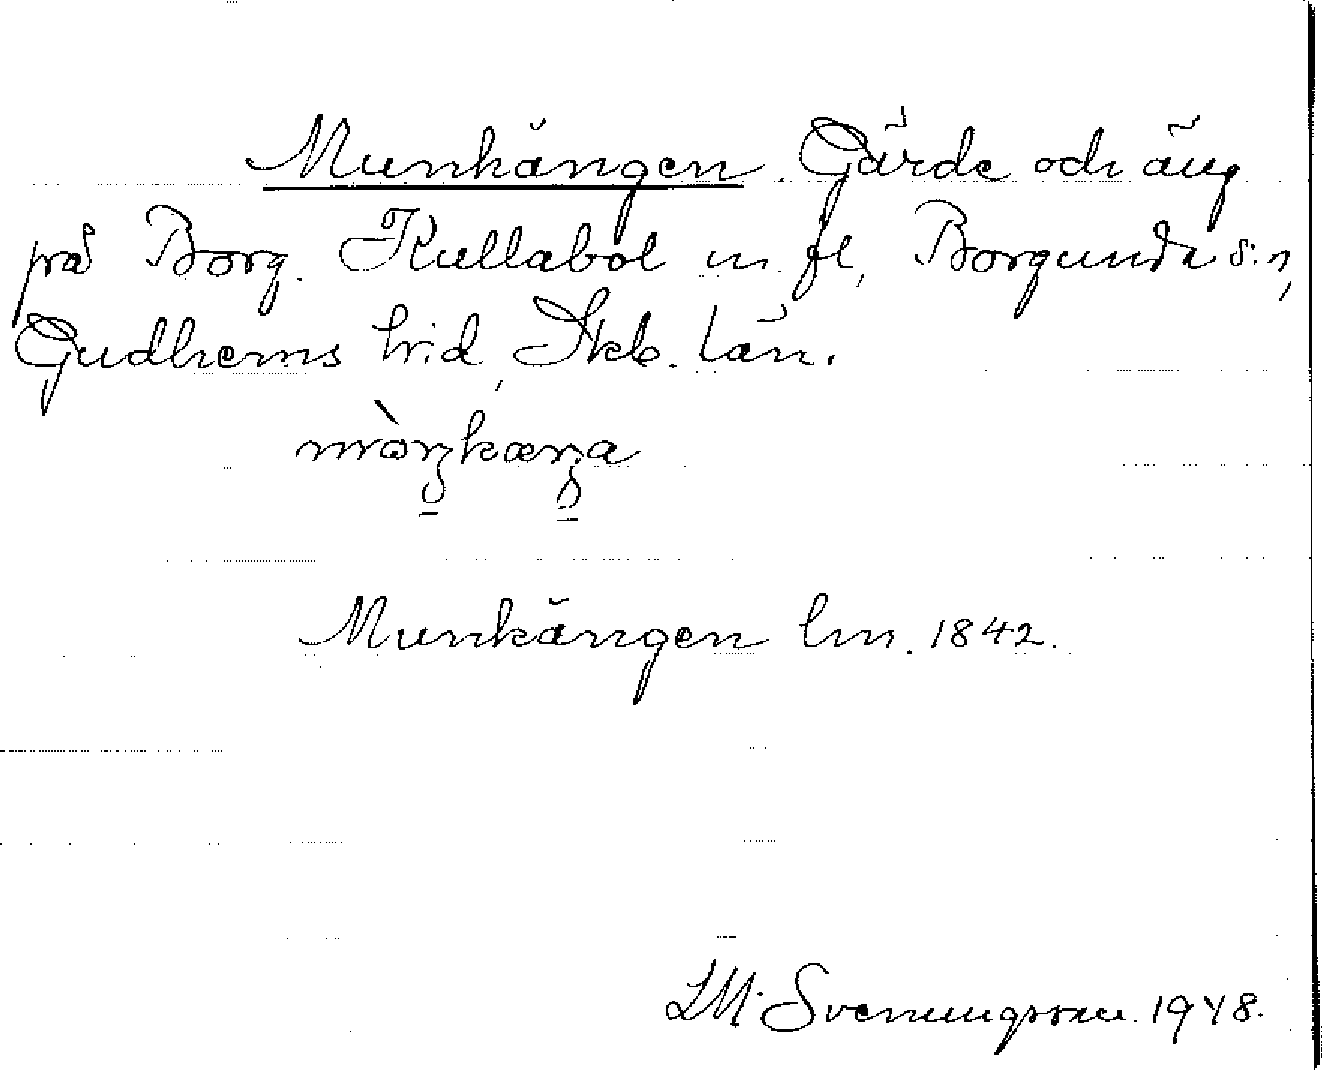 Munkängen. Gärde och äng
på Borg. Kullabol m. fl., Borgunda s:n,
Gudhems h:d, Skb. län.
mòŋkæŋa
Munkängen lm. 1842.
LM. Svenungsson 1948.